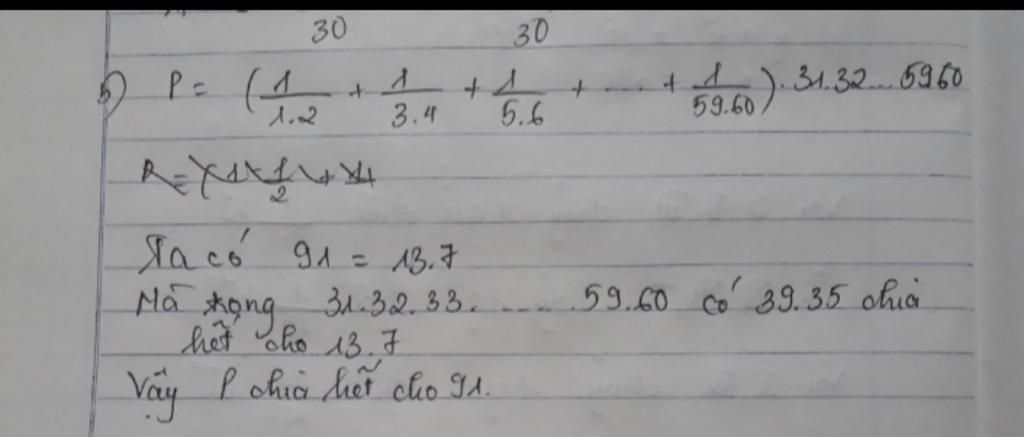 30 30
5) P = (1/1.2 + 1/3.4 + 1/5.6 + ..... + 1/59.60).31.32...5960
Ta có 91 = 13.7
Mà trong 31.32.33. ..... 59.60 có 39.35 chia
hết cho 13.7
Vậy P chia hết cho 91.